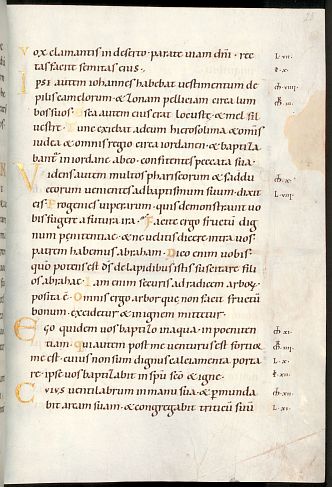 Vox clamantis in deserto · parate uiam dñi · rec
tas facite semitas eius ·,
Ipse autem iohannes habebat uestimentum de
pilis camelorum · & zonam pelliciam circa lum
bos suos · Esca autem eius erat locustę · & mel sil
uestre · Tunc exibat ad eum hierosolima & omis
iudea · & omnis regio circa iordanen · & baptiza
bant' in iordane ab eo · confitentes peccata sua ·
Videns autem multos phariseorum · & saddu
ceorum uenientes ad baptismum suum · dixit
eis · Progenies uiperarum · quis demonstrauit uo
bis fugere a futura ira · Facite ergo fructũ dig
num penitentiae · & ne uelitis dicere intra uos ·
patrem habemus abraham · Dico enim uobis
quo potens est ds de lapidibus istis suscitare fili
os abrahae · Iam enim securis ad radicem arbor
posita ẽ · Omnis ergo arbor que non facit fructũ
bonum · excidetur & in ignem mittetur ·
Ego quidem uos baptizo in aqua · in poeniten
tiam · qui autem post me uenturus est fortior
me est · cuius non sum dignus calciamenta porta
re · ipse uos baptizabit in spũ scõ & igne ·
Cuius uentilabrum in manu sua · & permunda
bit aream suam · & congregabit triticũ suũ